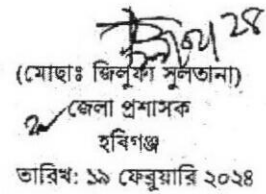 (মোছাঃ জিলুফা সুলতানা)
জেলা প্রশাসক
হবিগঞ্জ
তারিখ: ১৯ ফেব্রুয়ারি ২০২৪